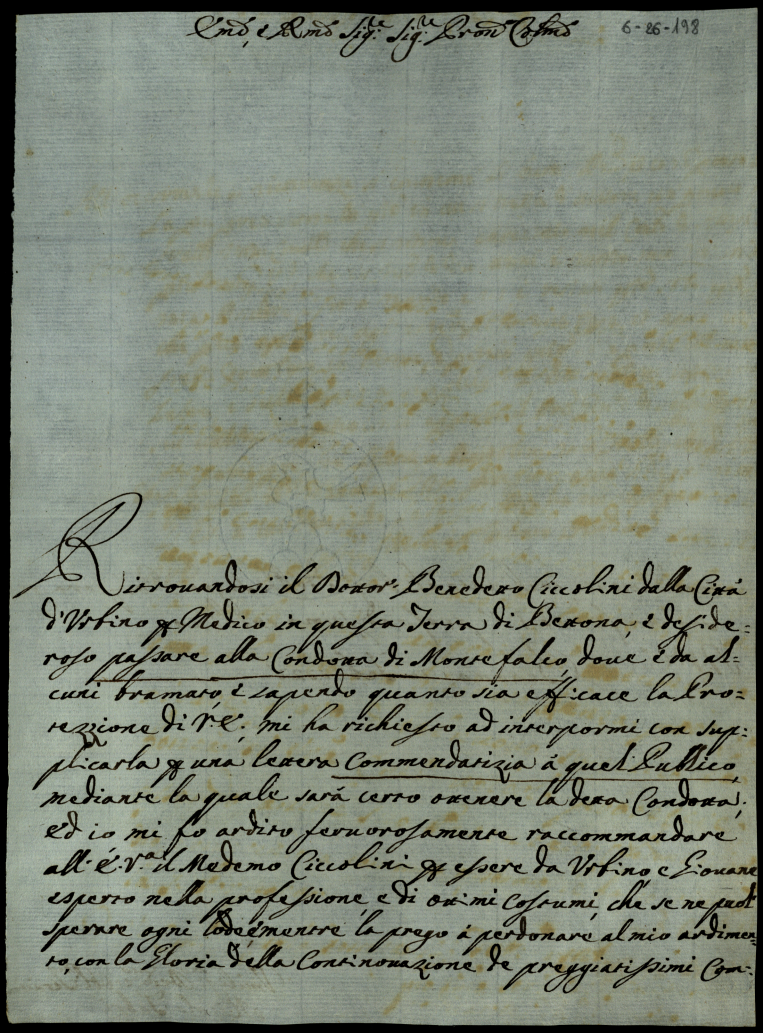 Em.o, e R.mo Sig.re Sig.re Pron.e Col.mo
6-86-198
Ritrouandosi il Dottor Benedetto Ciccolini dalla Città
d'Vrbino p Medico in questa Terra di Bettona, e deside=
roso passare alla Condotta di Montefalco, doue è da al=
cuni bramato, e sapendo quanto sia efficace la Pro=
tezzione di V. E. mi ha richiesto ad interpormi con sup=
plicarla p una lettera Commendatizia à quel Publico,
mediante la quale sarà certo ottenere la detta Condotta;
Ed io mi fo ardito feruorosamente raccommandare
all' E. V.a il Medemo Ciccolini p essere da Vrbino e Giouane
esperto nella professione, e di ottimi costumi, che se ne puol
sperare ogni lode, e mentre la prego à perdonare al mio ardimen=
to, con la Gloria della Continouazione de preggiatissimi Com=